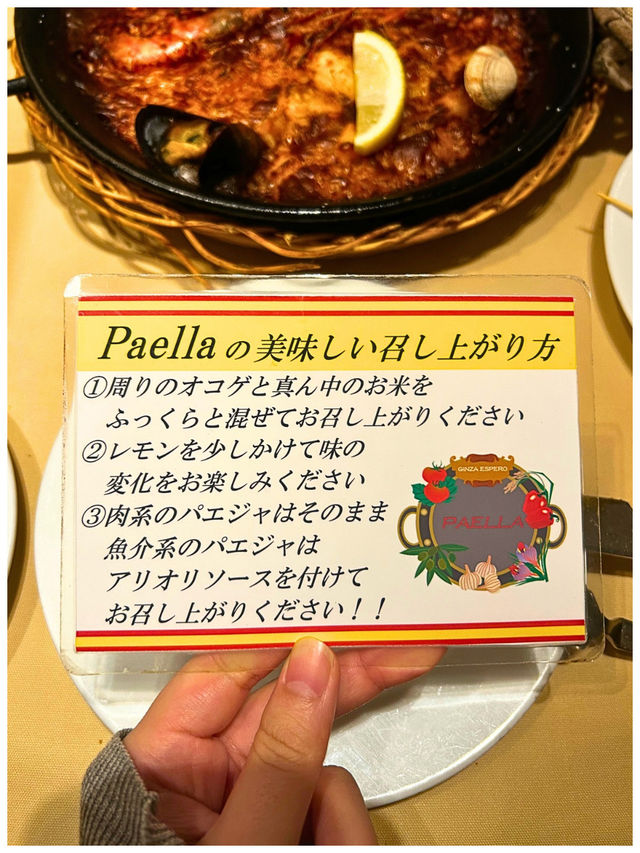 Paellaの美味しい召し上がり方
①周りのオコゲと真ん中のお米を
ふっくらと混ぜてお召し上がりください
②レモンを少しかけて味の
変化をお楽しみください
③肉系のパエジャはそのまま
魚介系のパエジャは
アリオリソースを付けて
お召し上がりください！！
GINZA ESPERO
PAELLA